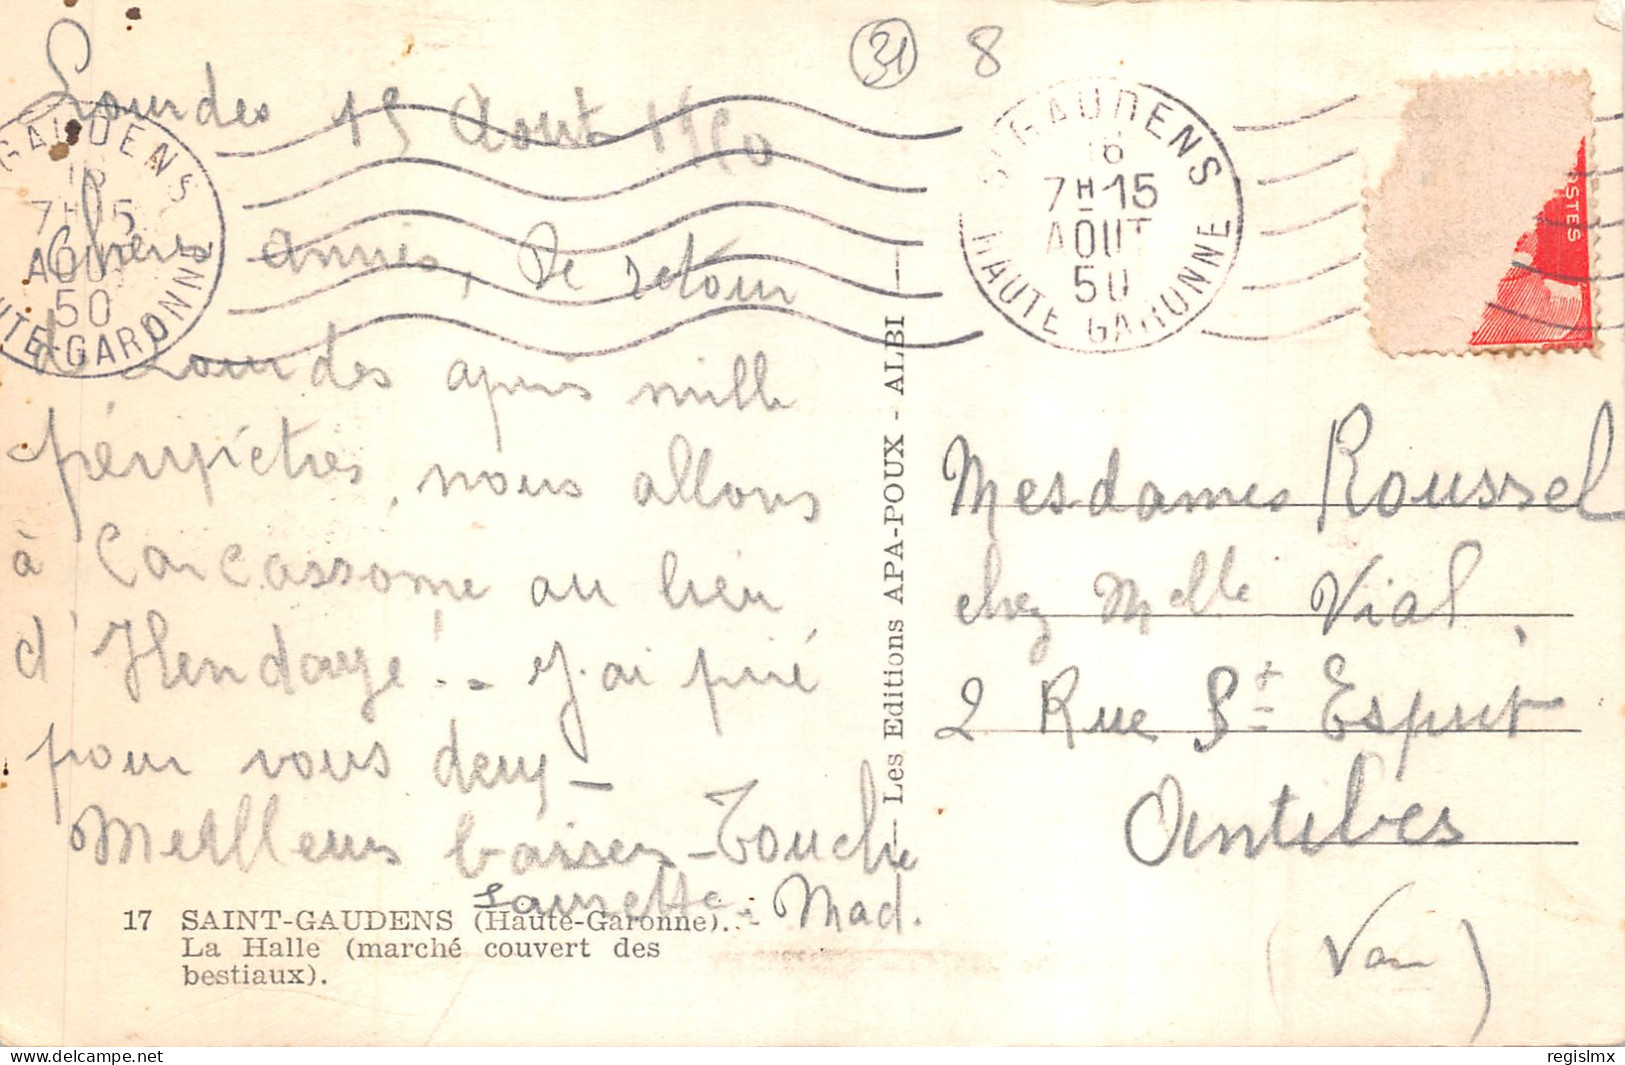 31 8
Lourdes 15 Aout 1950
Chers Amies, De retour
de Lourdes après mille
péripéties, nous allons
à Carcassonne au lieu
d'Hendaye! - J'ai prié
pour vous deux -
Meilleurs baisers -
Laurette - Mad.
17 SAINT-GAUDENS (Haute-Garonne).
La Halle (marché couvert des
bestiaux).
Les Editions APA-POUX - ALBI
GAUDENS
16
7H15
AOUT
50
HAUTE-GARONNE
ST GAUDENS
16
7H15
AOUT
50
HAUTE GARONNE
POSTES
Mesdames Roussel
chez Melle Vial,
2 Rue St Esprit
Antibes
(Var)
www.delcampe.net
regislmx